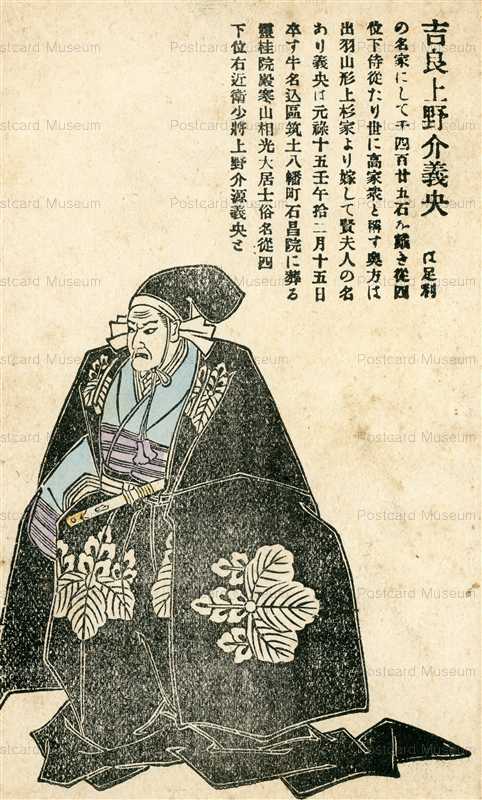 吉良上野介義央 は足利
の名家にして千四百廿五石を戴き從四
位下侍從たり世に高家衆と稱す奥方は
出羽山形上杉家より嫁して賢夫人の名
あり義央は元祿十五壬午拾二月十五日
卒す牛名込區筑土八幡町石昌院に葬る
靈桂院殿寒山相光大居士俗名從四
下位右近衛少將上野介源義央と
Postcard Museum